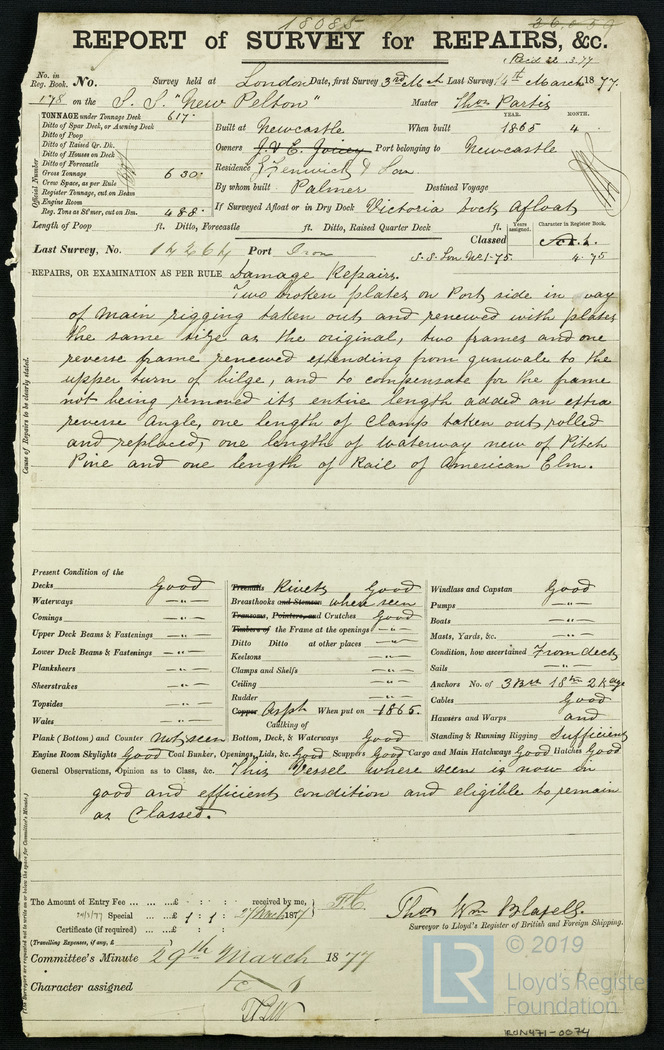 18085
26,059
REPORT of SURVEY for REPAIRS, &c.
Paid 22.3.77
No. in Reg. Book. No. Survey held at London Date, first Survey 3rd Mch Last Survey 14th March 1877.
178 on the S.S. "New Pelton" Master Thos Partis
TONNAGE under Tonnage Deck 617.
Ditto of Spar Deck, or Awning Deck
Ditto of Poop
Ditto of Raised Qr. Dk.
Ditto of Houses on Deck
Ditto of Forecastle
Gross Tonnage 630.
Gross Space, as per Rule
Register Tonnage, cut on Beam
Engine Room
Reg. Tons as St'mer, cut on Bm. 488.
Official Number
YEAR. MONTH.
Built at Newcastle When built 1865 4
Owners J. & E. Joicey Port belonging to Newcastle
Residence Fenwick & Son
By whom built Palmer Destined Voyage
If Surveyed Afloat or in Dry Dock Victoria Dock Afloat
Length of Poop ft. Ditto, Forecastle ft. Ditto, Raised Quarter Deck ft.
Years assigned. Character in Register Book.
Last Survey, No. 14264 Port Iron Classed
S.S. Lon No 1-75 4.75
REPAIRS, OR EXAMINATION AS PER RULE Damage Repairs.
Two broken plates on Port side in way
of Main rigging taken out and renewed with plates
the same size as the original, two frames and one
reverse frame renewed extending from gunwale to the
upper turn of bilge, and to compensate for the frame
not being removed its entire length added an extra
reverse angle, one length of Clamp taken out, rolled
and replaced, one length of Waterway new of Pitch
Pine and one length of Rail of American Elm.
Cause of Repairs to be clearly stated.
Present Condition of the
Decks Good
Waterways —"—
Comings —"—
Upper Deck Beams & Fastenings —"—
Lower Deck Beams & Fastenings —"—
Planksheers —"—
Sheerstrakes —"—
Topsides —"—
Wales —"—
Plank (Bottom) and Counter not seen
Treenails Rivets Good
Breasthooks and Stemson when seen
Transoms, Pointers, and Crutches Good
Timbers of the Frame at the openings —"—
Ditto Ditto at other places —"—
Keelsons —"—
Clamps and Shelfs —"—
Ceiling —"—
Rudder —"—
Copper Asph When put on 1865.
Caulking of
Bottom, Deck, & Waterways Good
Windlass and Capstan Good
Pumps —"—
Boats —"—
Masts, Yards, &c. —"—
Condition, how ascertained From deck
Sails —"—
Anchors No. of 3 Br 1 Stm 2 Kedge
Cables Good
Hawsers and Warps and
Standing & Running Rigging Sufficient
Engine Room Skylights Good Coal Bunker, Openings, Lids, &c. Good Scuppers Good Cargo and Main Hatchways Good Hatches Good
General Observations, Opinion as to Class, &c. This Vessel where seen is now in
good and efficient condition and eligible to remain
as Classed.
The Amount of Entry Fee ... ... ...£ : : received by me,
Special ... ...£ 1 : 1 : 27 March 1877
Certificate (if required) ... ...£ : :
(Travelling Expenses, if any, £ )
Thos Wm Blabell.
Surveyor to Lloyd's Register of British and Foreign Shipping.
Committee's Minute 29th March 1877
Character assigned
© 2019
LR
Lloyd's Register
Foundation
IRON471-0074